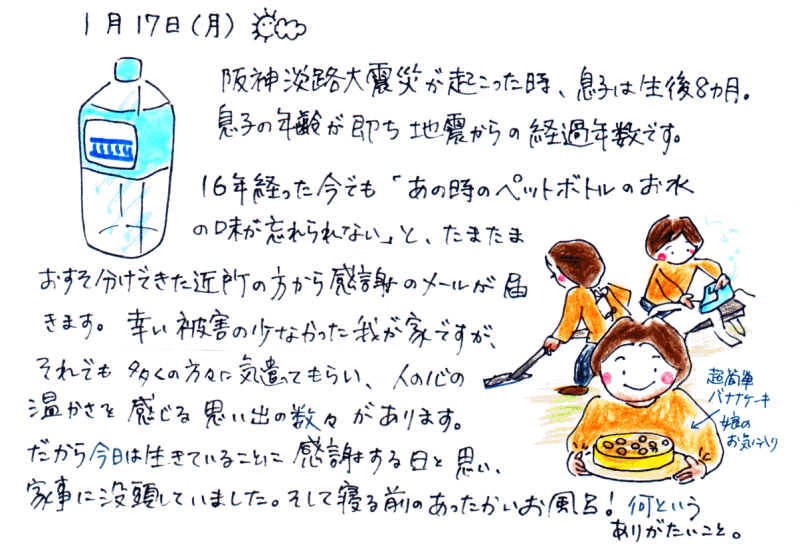 1月17日(月)
阪神淡路大震災が起こった時、息子は生後8カ月。
息子の年齢が即ち地震からの経過年数です。
16年経った今でも「あの時のペットボトルのお水
の味が忘れられない」と、たまたま
おすそ分けできた近所の方から感謝のメールが届
きます。幸い被害の少なかった我が家ですが、
それでも多くの方々に気遣ってもらい、人の心の
温かさを感じる思い出の数々があります。
だから今日は生きていることに感謝する日と思い、
家事に没頭していました。そして寝る前のあったかいお風呂!何という
ありがたいこと。
超簡単
バナナケーキ
娘の
お気に入り